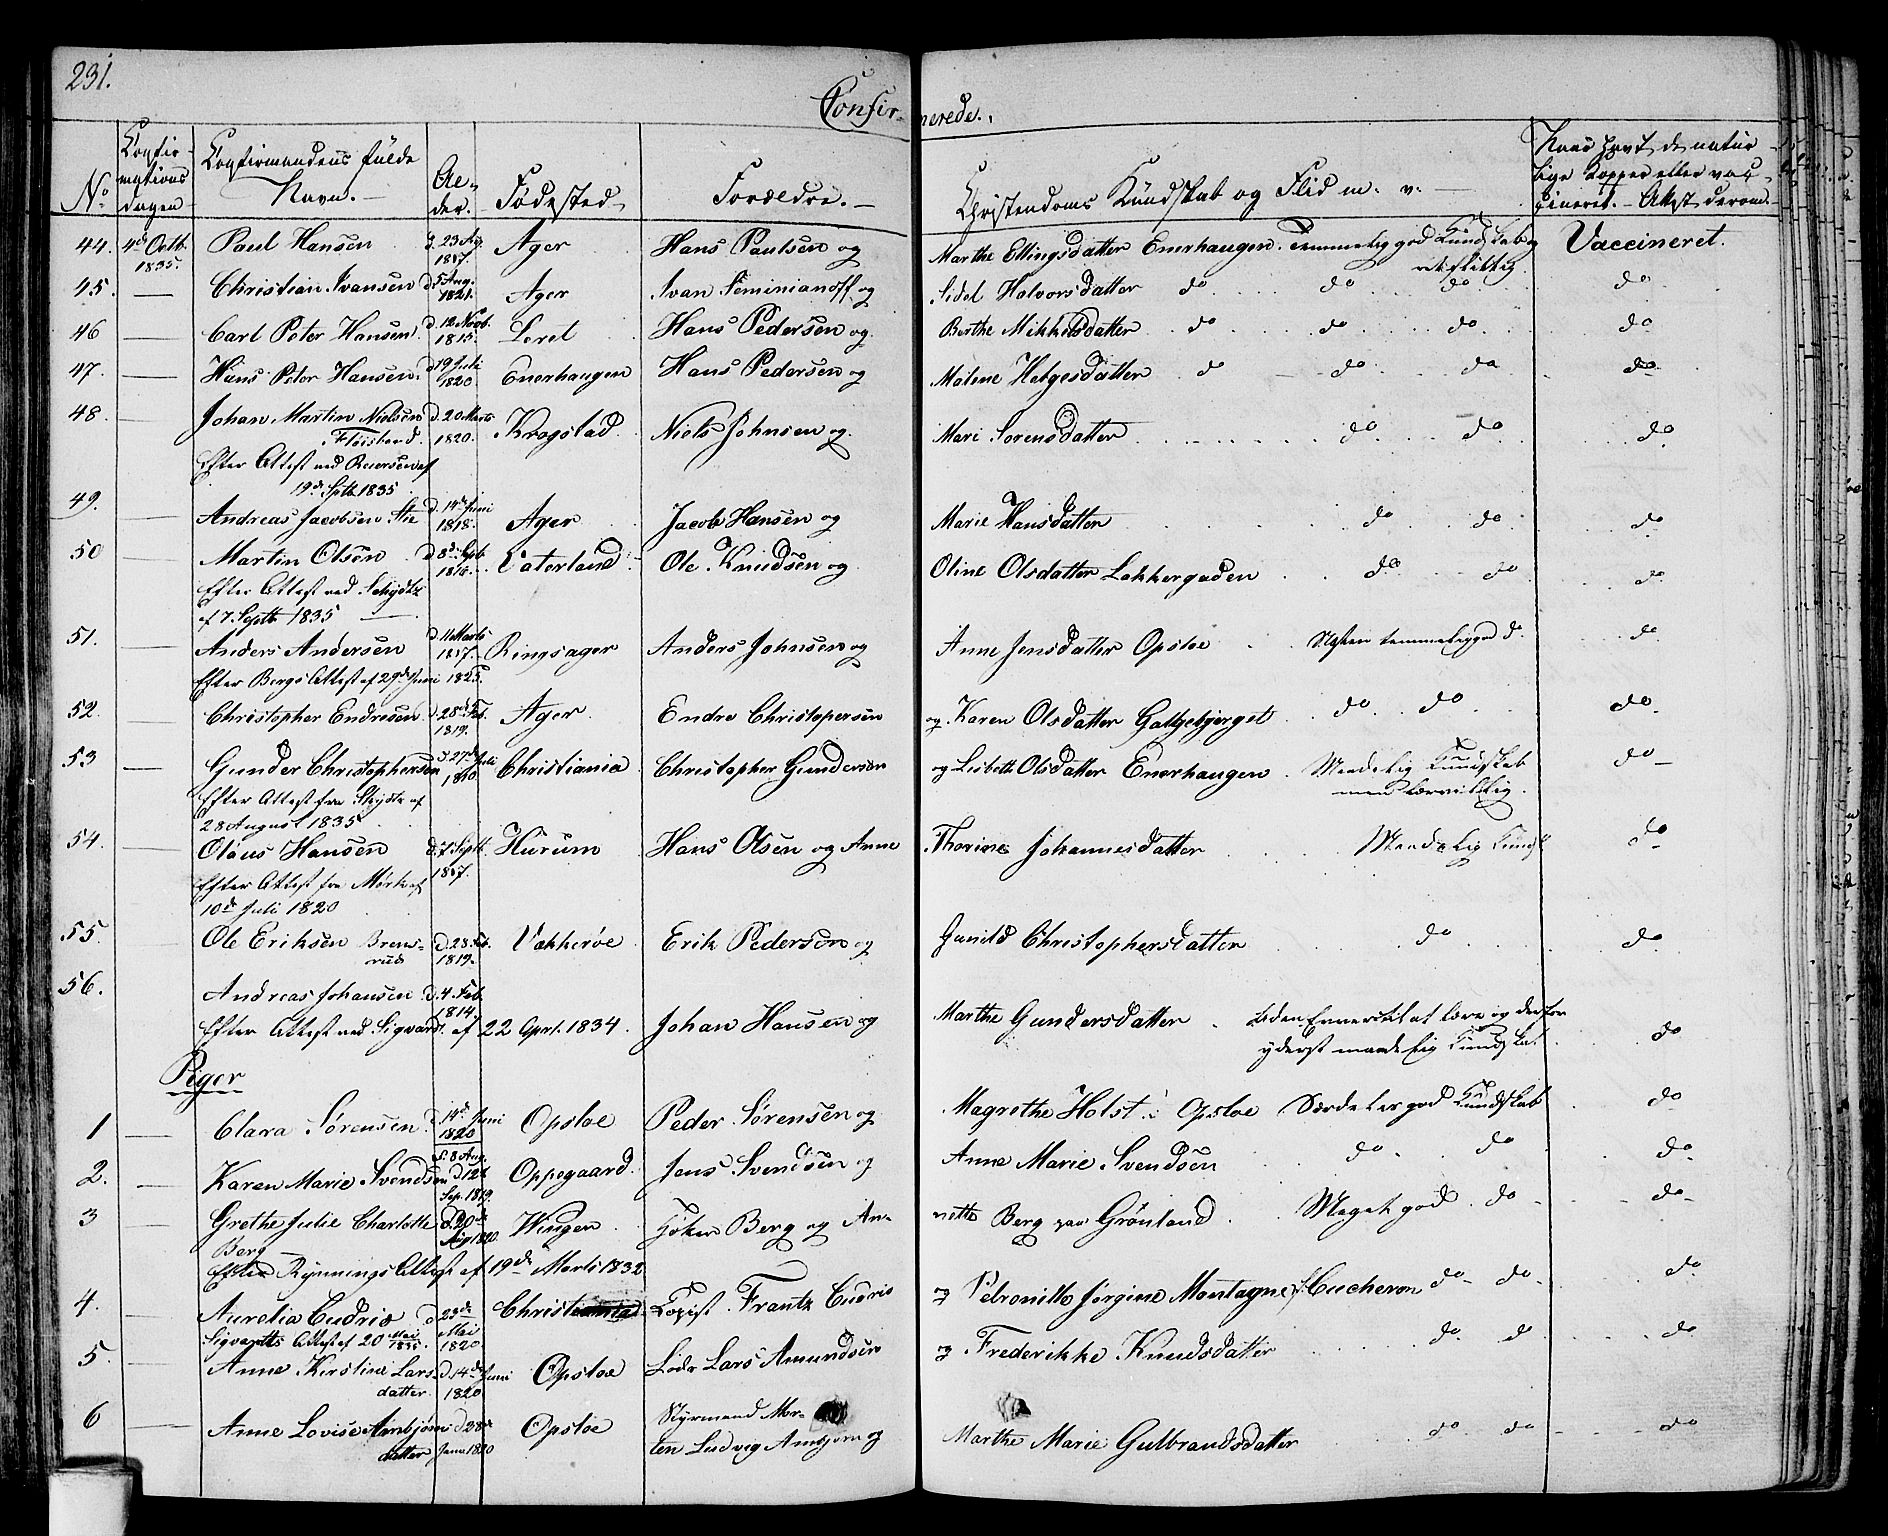 231.
Confirmerede.
No
Confirmations dagen
Confirmandens fulde Navn.
Alder.
Fødested
Forældre.
Christendoms Kundskab og Flid m. v.
Naar havt de naturlige Kopper eller vaccineret. - Attest derom.
44. 4de Octb. 1835. Paul Hansen d. 23 Aug. 1817. Ager Hans Paulsen og Marthe Ellingsdatter Enerhaugen. Temmelig god Kundskab og flittig. Vaccineret.
45. Christian Ivansen d. 5 Aug. 1821. Ager Ivan Siminianoff og Sidel Halvorsdatter do do do do
46 Carl Peter Hansen d. 12 Novb. 1815. Leret Hans Pedersen og Berthe Mikkelsdatter do do do do
47. Hans Peter Hansen. d 19 Juli 1820. Enerhaugen Hans Pedersen og Malene Helgesdatter do do do do
48. Johan Martin Nielsen d. 20 Marts 1820. Krogstad Niels Johnsen og Mari Sorensdatter do do do
Efter Attest ved af
19de Septb 1835.
49. Andreas Jacobsen d. 14de Juni 1818. Ager Jacob Hansen og Marie Hansdatter do do do
50 Martin Olsen d 8de Septb 1816. Vaterland Ole Knudsen og Oline Olsdatter Lakkergaden do do do
Efter Attest ved Schydtz
af 7 Septb 1835
51. Anders Andersen d. 11 Marts 1817. Ringsager Anders Johnsen og Anne Jensdatter Opsloe Næsten temmelig god. do
Efter Bergs Attest af 29de Juni 1825.
52. Christopher Endresen d 28de Feb. 1819. Ager Endre Christopersen og Karen Olsdatter Galgebjerget do do do
53 Gunder Christophersen d 27de Juli 1810 Christiania Christopher Gundersen og Lisbeth Olsdatter Enerhaugen Maadelig Kundskab men lærvillig. do
Efter Attest fra af
28 August 1835
54. Olaus Hansen d. 7 Septb. 1817. Hurum Hans Olsen og Anne Thorine Johannesdatter Maadelig Kundsk do
Efter Attest fra Mørk af
10de Juli 1820
55. Ole Eriksen Brensrud d. 28 Feb. 1819. Vækkerøe Erik Pedersen og Gunild Christophersdatter do do
56. Andreas Johansen d. 4 Feb. 1814. Johan Hansen og Marthe Gundersdatter Uden Evner til at lære og derfor yderst maadelig Kundskab. do
Efter Attest ved Sigvardt. af 22 April. 1834.
Piger
1 Clara Sørensen d 14de Juni 1820 Opsloe Peder Sørensen og Magrethe Holst i Opsloe Særdeles god Kundskab do
2. Karen Marie Svendsen f. 8 Aug. d 12te Sep. 1819. Oppegaard Jens Svendsen og Anne Marie Svendsen do do do
3 Grethe Julie Charlotte Berg d. 20de Aug 1820. Wingen Berg og Annette Berg paa Grønland Meget god do do
Efter Rynnings Attest af 19de Marts 1832
4. Aurelia Cudrio d 23de Mai 1820 Copist Frantz Cudrio og Petronille Jørgine Montagne f. Cucheron do do do
Sigvardts Attest af 20 Mai
5. Anne Kirstine Larsdatter d. 14de Juni 1820. Opsloe Lars Amundsen og Frederikke Knudsdatter do do do
6 Anne Lovise Arnbjørnsdatter d 28de Juni 1820 Opsloe Styrmand Morten Ludvig Arnbjørn og Marthe Marie Gulbrandsdatter do do do